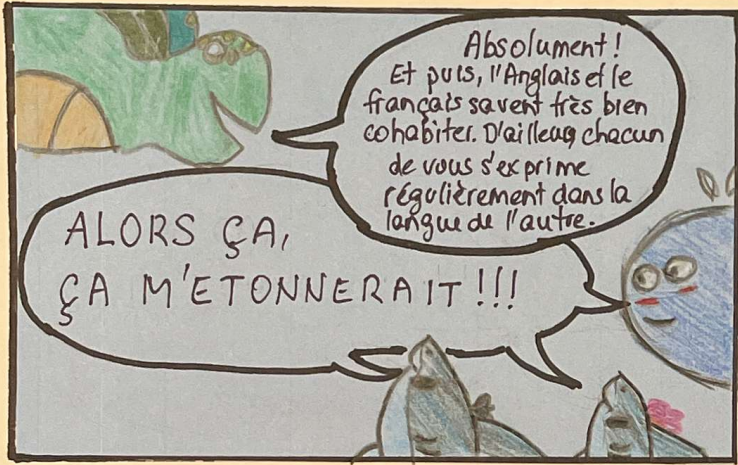 Absolument !
Et puis, l'Anglais et le
français savent très bien
cohabiter. D'ailleurs chacun
de vous s'exprime
régulièrement dans la
langue de l'autre.
ALORS ÇA,
ÇA M'ETONNERAIT !!!